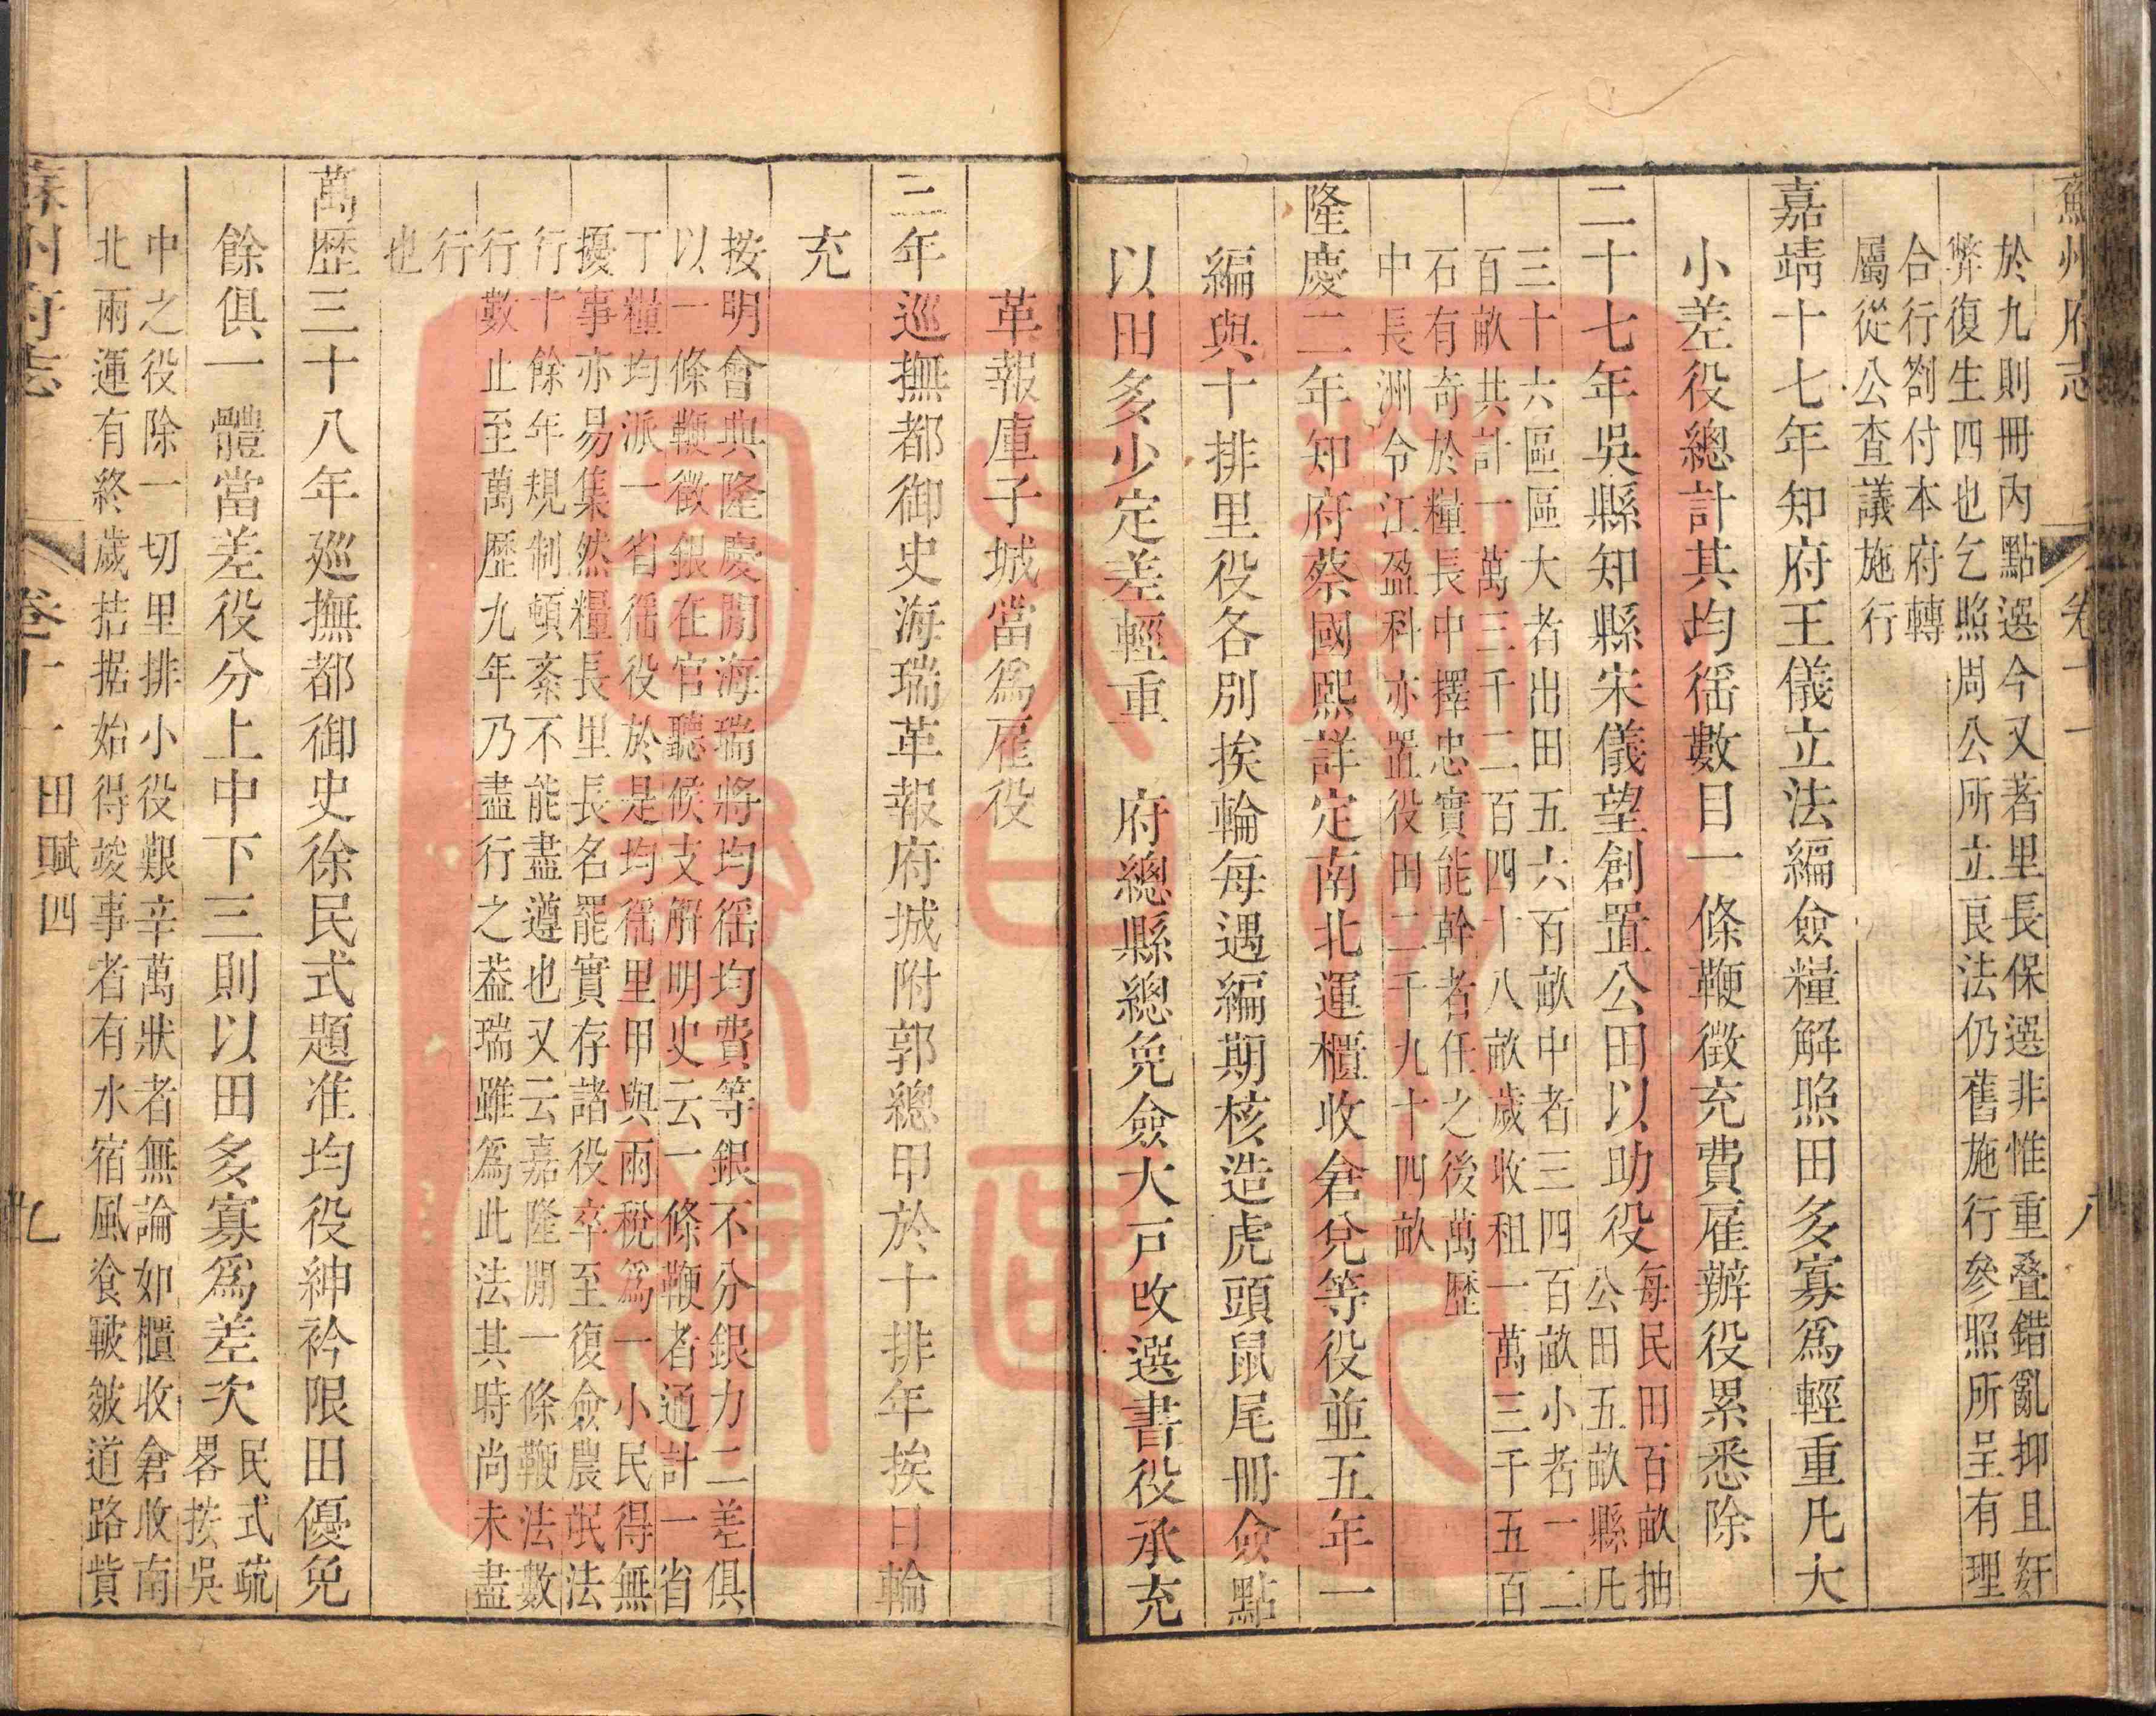 蘇州府志
卷十一
八
於九則冊內點選今又著里長保選非惟重叠錯亂抑且奸
弊復生四也乞照周公所立良法仍舊施行參照所呈有理
合行劄付本府轉
屬從公查議施行
嘉靖十七年知府王儀立法編僉糧解照田多寡爲輕重凡大
小差役總計其均徭數目一條鞭徵充費雇辦役累悉除
二十七年吳縣知縣宋儀望創置公田以助役
每民田百畝抽
公田五畝縣凡
三十六區區大者出田五六百畝中者三四百畝小者一二
百畝共計一萬三千二百四十八畝歲收租一萬三千五百
石有奇於糧長中擇忠實能幹者任之後萬歷
中長洲令江盈科亦置役田二千九十四畝
隆慶二年知府蔡國熙詳定南北運櫃收倉兌等役並五年一
編與十排里役各別挨輪每遇編期核造虎頭鼠尾冊僉點
以田多少定差輕重 府總縣總免僉大戶改選書役承充
革報庫子城當爲雇役
三年巡撫都御史海瑞革報府城附郭總甲於十排年挨日輪
充
按明會典隆慶間海瑞將均徭均費等銀不分銀力二差俱
以一條鞭徵銀在官聽候支解明史云一條鞭者通計一省
丁糧均派一省徭役於是均徭里甲與兩稅爲一小民得無
擾事亦易集然糧長里長名罷實存諸役卒至復僉農氓法
行十餘年規制頓紊不能盡遵也又云嘉隆間一條鞭法數
行數止至萬歷九年乃盡行之葢瑞雖爲此法其時尚未盡
行
也
萬歷三十八年廵撫都御史徐民式題准均役紳衿限田優免
餘俱一體當差役分上中下三則以田多寡爲差次
民式疏
畧按吳
中之役除一切里排小役艱辛萬狀者無論如櫃收倉收南
北兩運有終歲拮据始得竣事者有水宿風飡皸皴道路貲
蘇州府志
卷十一
田賦四
九